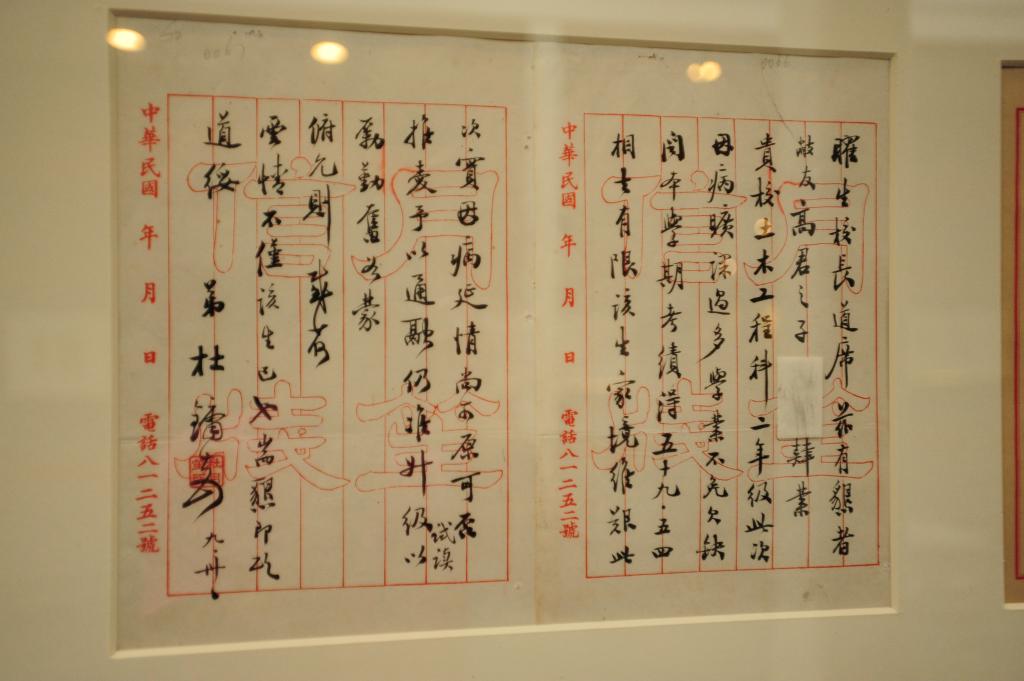 曜生校長道席 茲有懇者
敝友高君之子 肄業
貴校土木工程科二年級此次
因病曠課過多學業不免欠缺
閱本學期考績得五十九·五四
相去有限該生家境維艱此
次實因病延情尚可原可否
推愛予以通融仍准升級以
試讀
勵勤奮如蒙
俯允則感荷
雲情不僅該生已也耑懇即頌
道綏
弟杜鏞
九·卅
中華民國 年 月 日 電話八一二五二號
中華民國 年 月 日 電話八一二五二號
用信
0067
0066